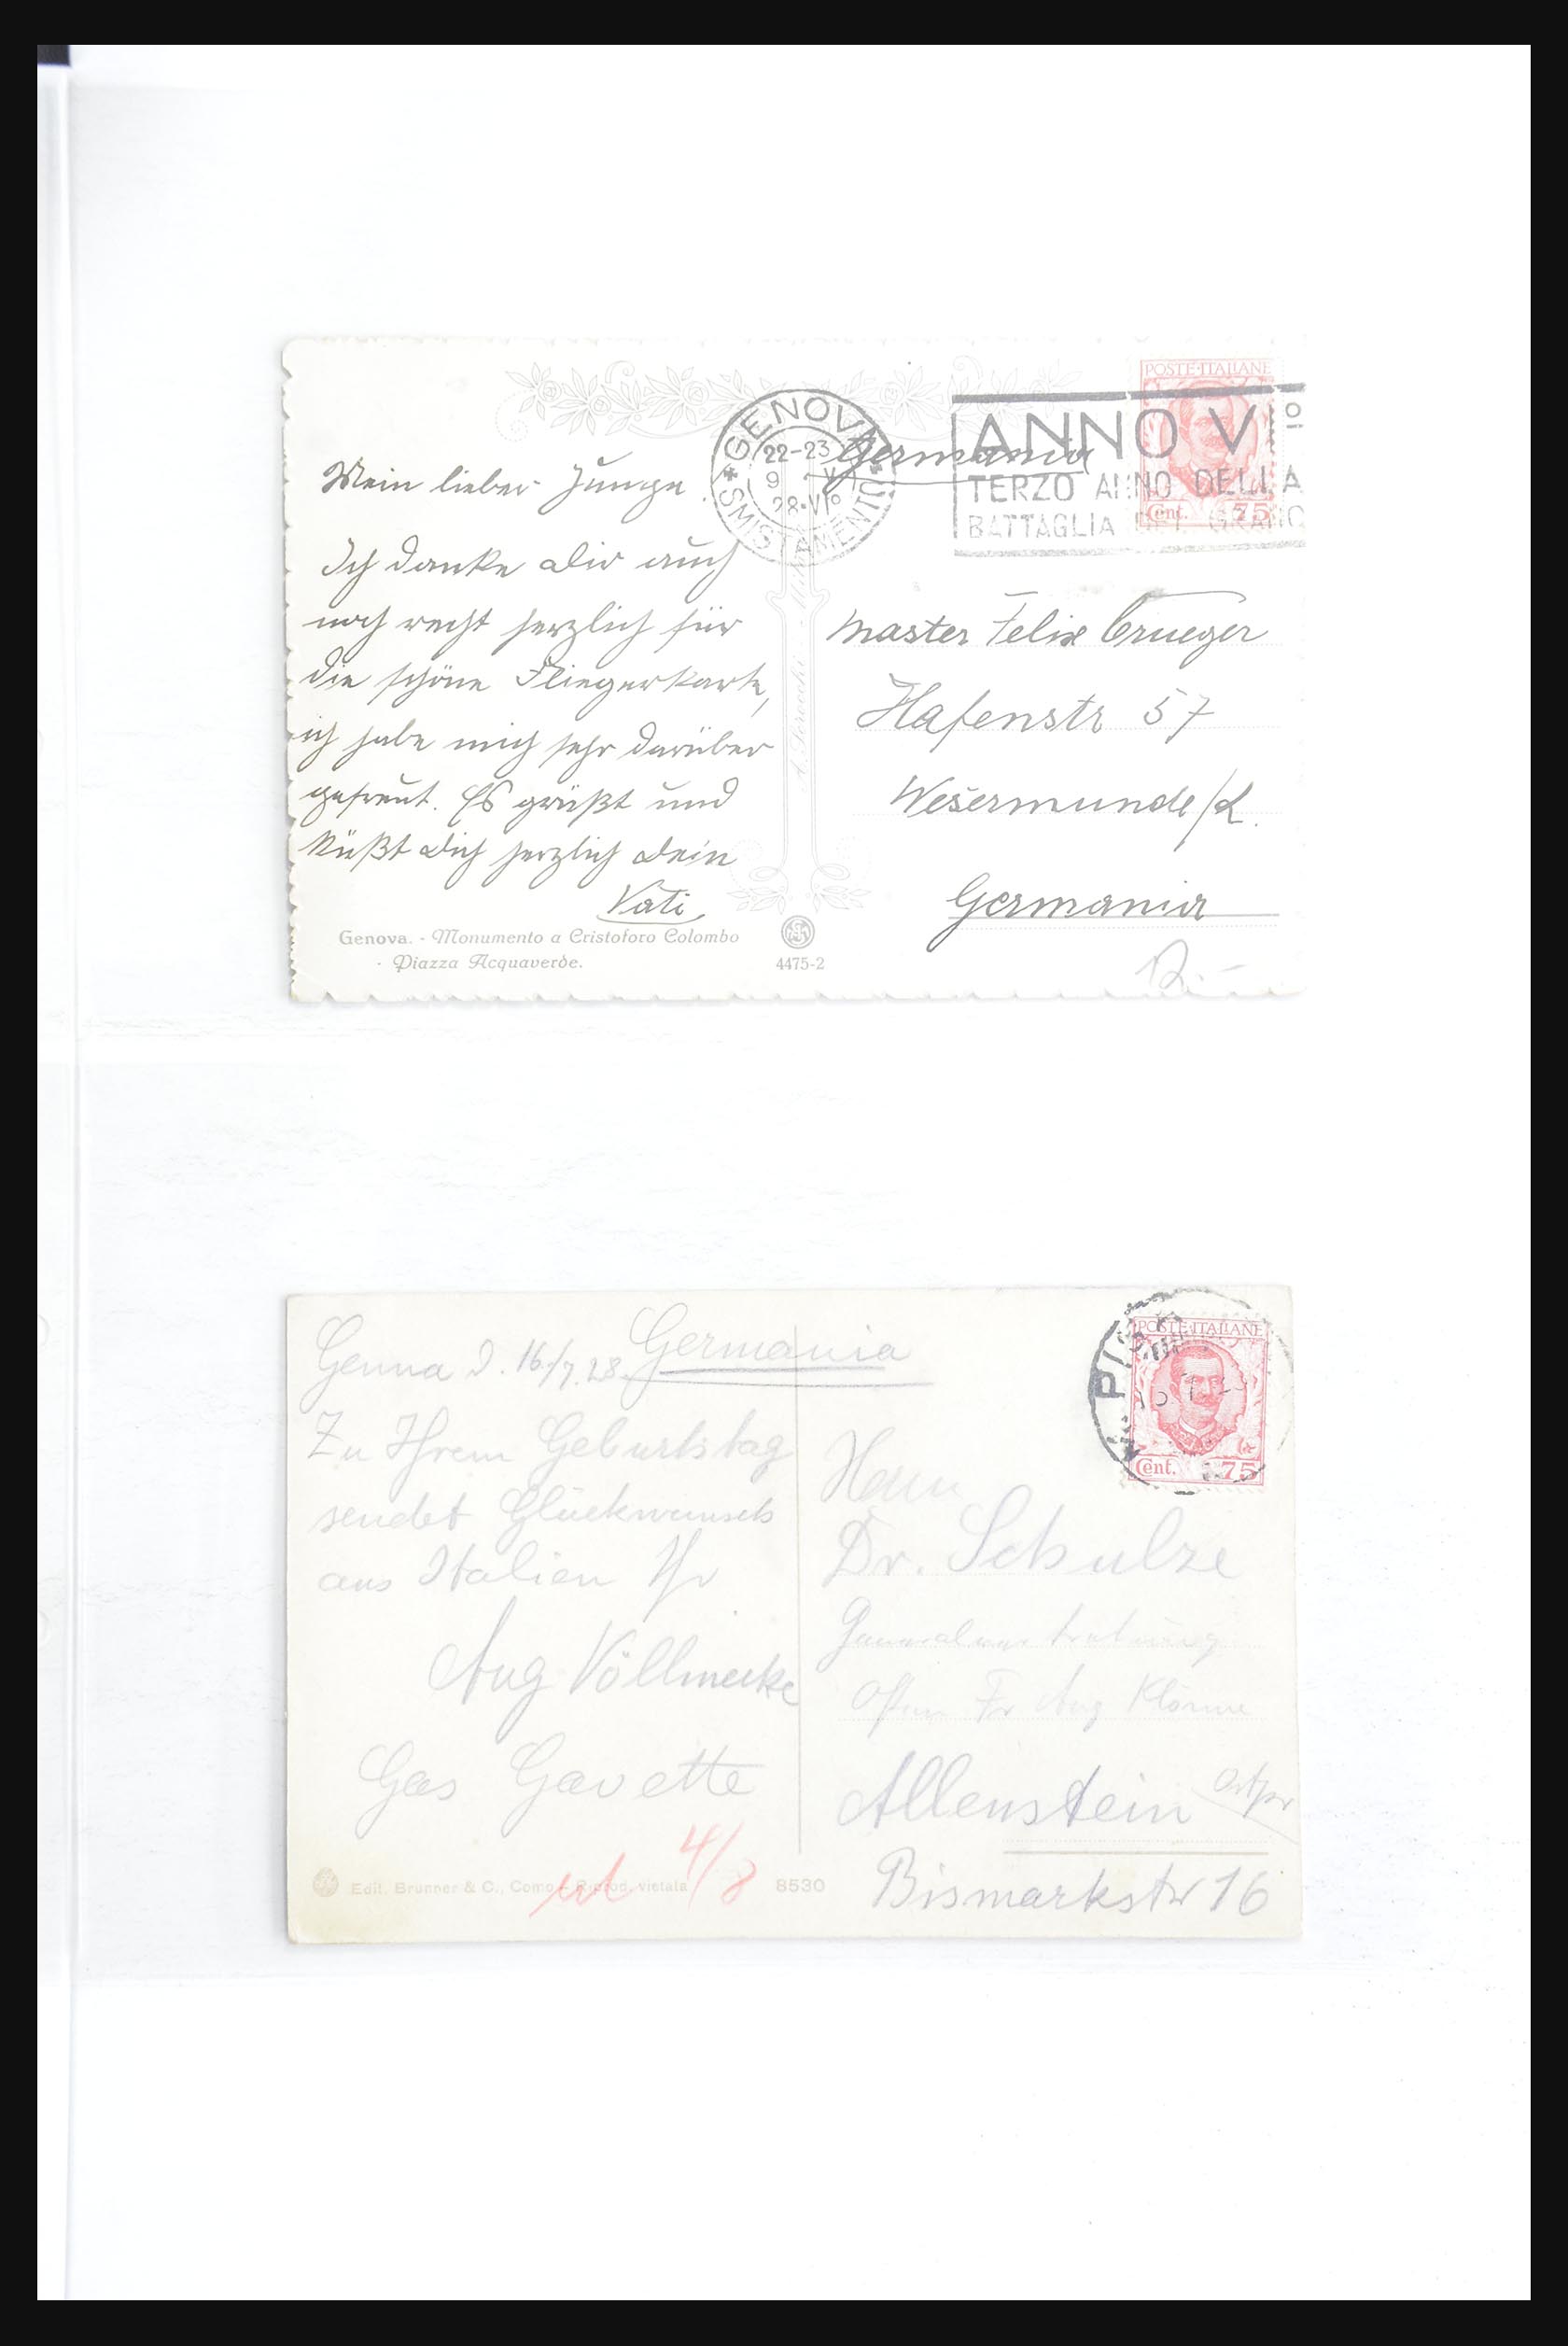 Mein lieber Junge.
Ich danke Dir auch
noch recht herzlich für
die schöne Fliegerkarte,
ich habe mich sehr darüber
gefreut. Es grüßt und
küßt Dich herzlich Dein
Vati
Genova. - Monumento a Cristoforo Colombo
- Piazza Acquaverde.
4475-2
GENOVA
SMISTAMENTO
22-23
28·VI°
Germania
POSTE·ITALIANE
Cent. 75
ANNO VI°
TERZO ANNO DELLA
BATTAGLIA DEL GRANO
Master Felix Crueger
Hafenstr 57
Wesermunde/L.
Germania
Genua d. 16./7.28.
Germania
Zu Ihrem Geburtstag
sendet Glückwunsch
aus Italien Ihr
Aug Völlmecke
Gas Gavette
4/8
Edit. Brunner & C., Como - Riprod. vietata
8530
POSTE·ITALIANE
Cent. 75
Herrn
Dr. Schulze
Generalvertretung
Fr Aug Klönne
Allenstein Ostpr
Bismarkstr 16